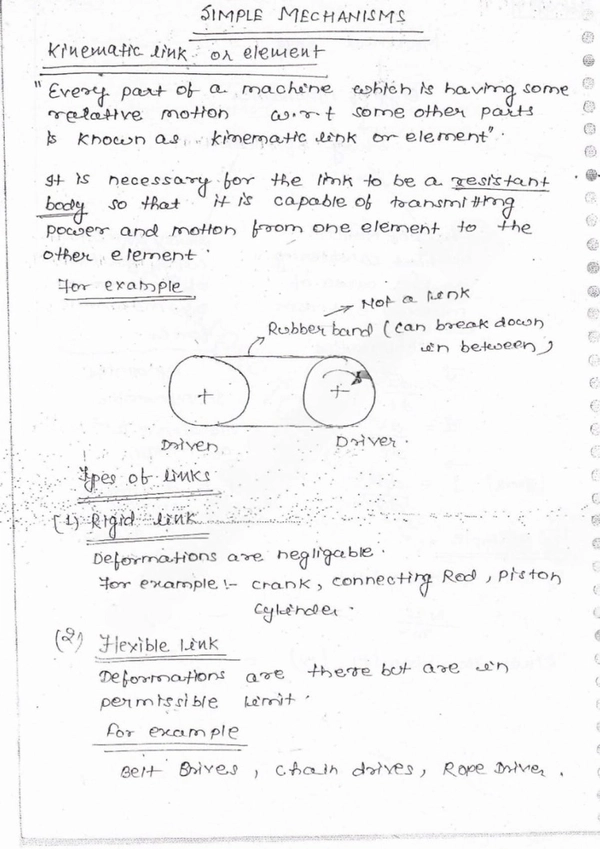 SIMPLE MECHANISMS
Kinematic link or element
"Every part of a machine which is having some
relative motion w.r.t some other parts
is known as kinematic link or element".
It is necessary for the link to be a resistant
body so that it is capable of transmitting
power and motion from one element to the
other element.
For example
→ Not a link
Rubber band (can break down
in between)
Driven
Driver.
Types of links
(1) Rigid link
Deformations are negligable.
For example :- crank, connecting Rod, piston
cylinder.
(2) Flexible link
Deformations are there but are in
permissible limit.
for example
Belt Drives, chain drives, Rope Driver.